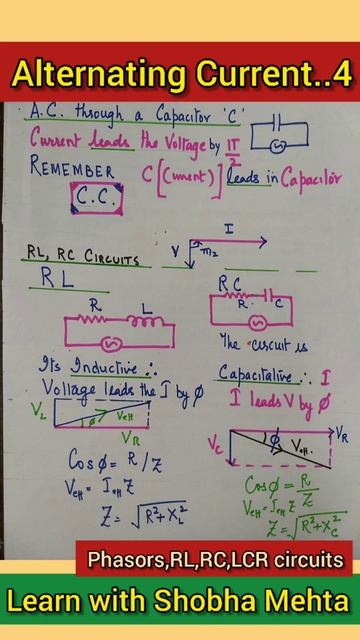 Alternating Current..4
A.C. through a Capacitor 'C'
Current leads the Voltage by π/2
REMEMBER C[(urrent)] leads in Capacitor
C.C.
I
V π/2
RL, RC CIRCUITS
RL
RC
R L
R C
The circuit is
Its Inductive ∴
Voltage leads the I by Ø
Capacitative ∴ I
I leads V by Ø
VL Veff Ø VR
VC Ø Veff. VR
Cos Ø = R/Z
Veff = Ieff Z
Z = √R²+XL²
Cos Ø = R/Z
Veff = Ieff Z
Z = √R²+XC²
Phasors,RL,RC,LCR circuits
Learn with Shobha Mehta